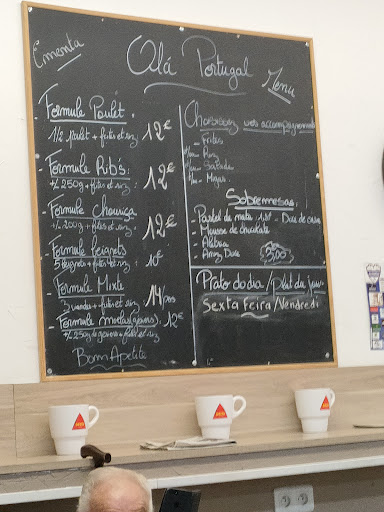 Ementa
Olá Portugal
Menu
- Formule Poulet.
1/2 poulet + frites et riz 12€
- Formule Ribs:
+/- 250g + frites et riz 12€
- Formule Chouriça
+/- 200g + frites et riz 12€
- Formule Beignets
5 beignets + frites et riz 10€
- Formule Mixte
3 viandes + frites et riz 14/pers
- Formule
12€
Bom Apetite
Choisissez vos accompagnements
- Frites
- Riz
- Salade
- Migas
Sobremesas:
- Pastel de nata
- Mousse de chocolate
- Aletria
- Arroz Doce 3,00
Prato do dia / plat du jour
Sexta Feira / Vendredi